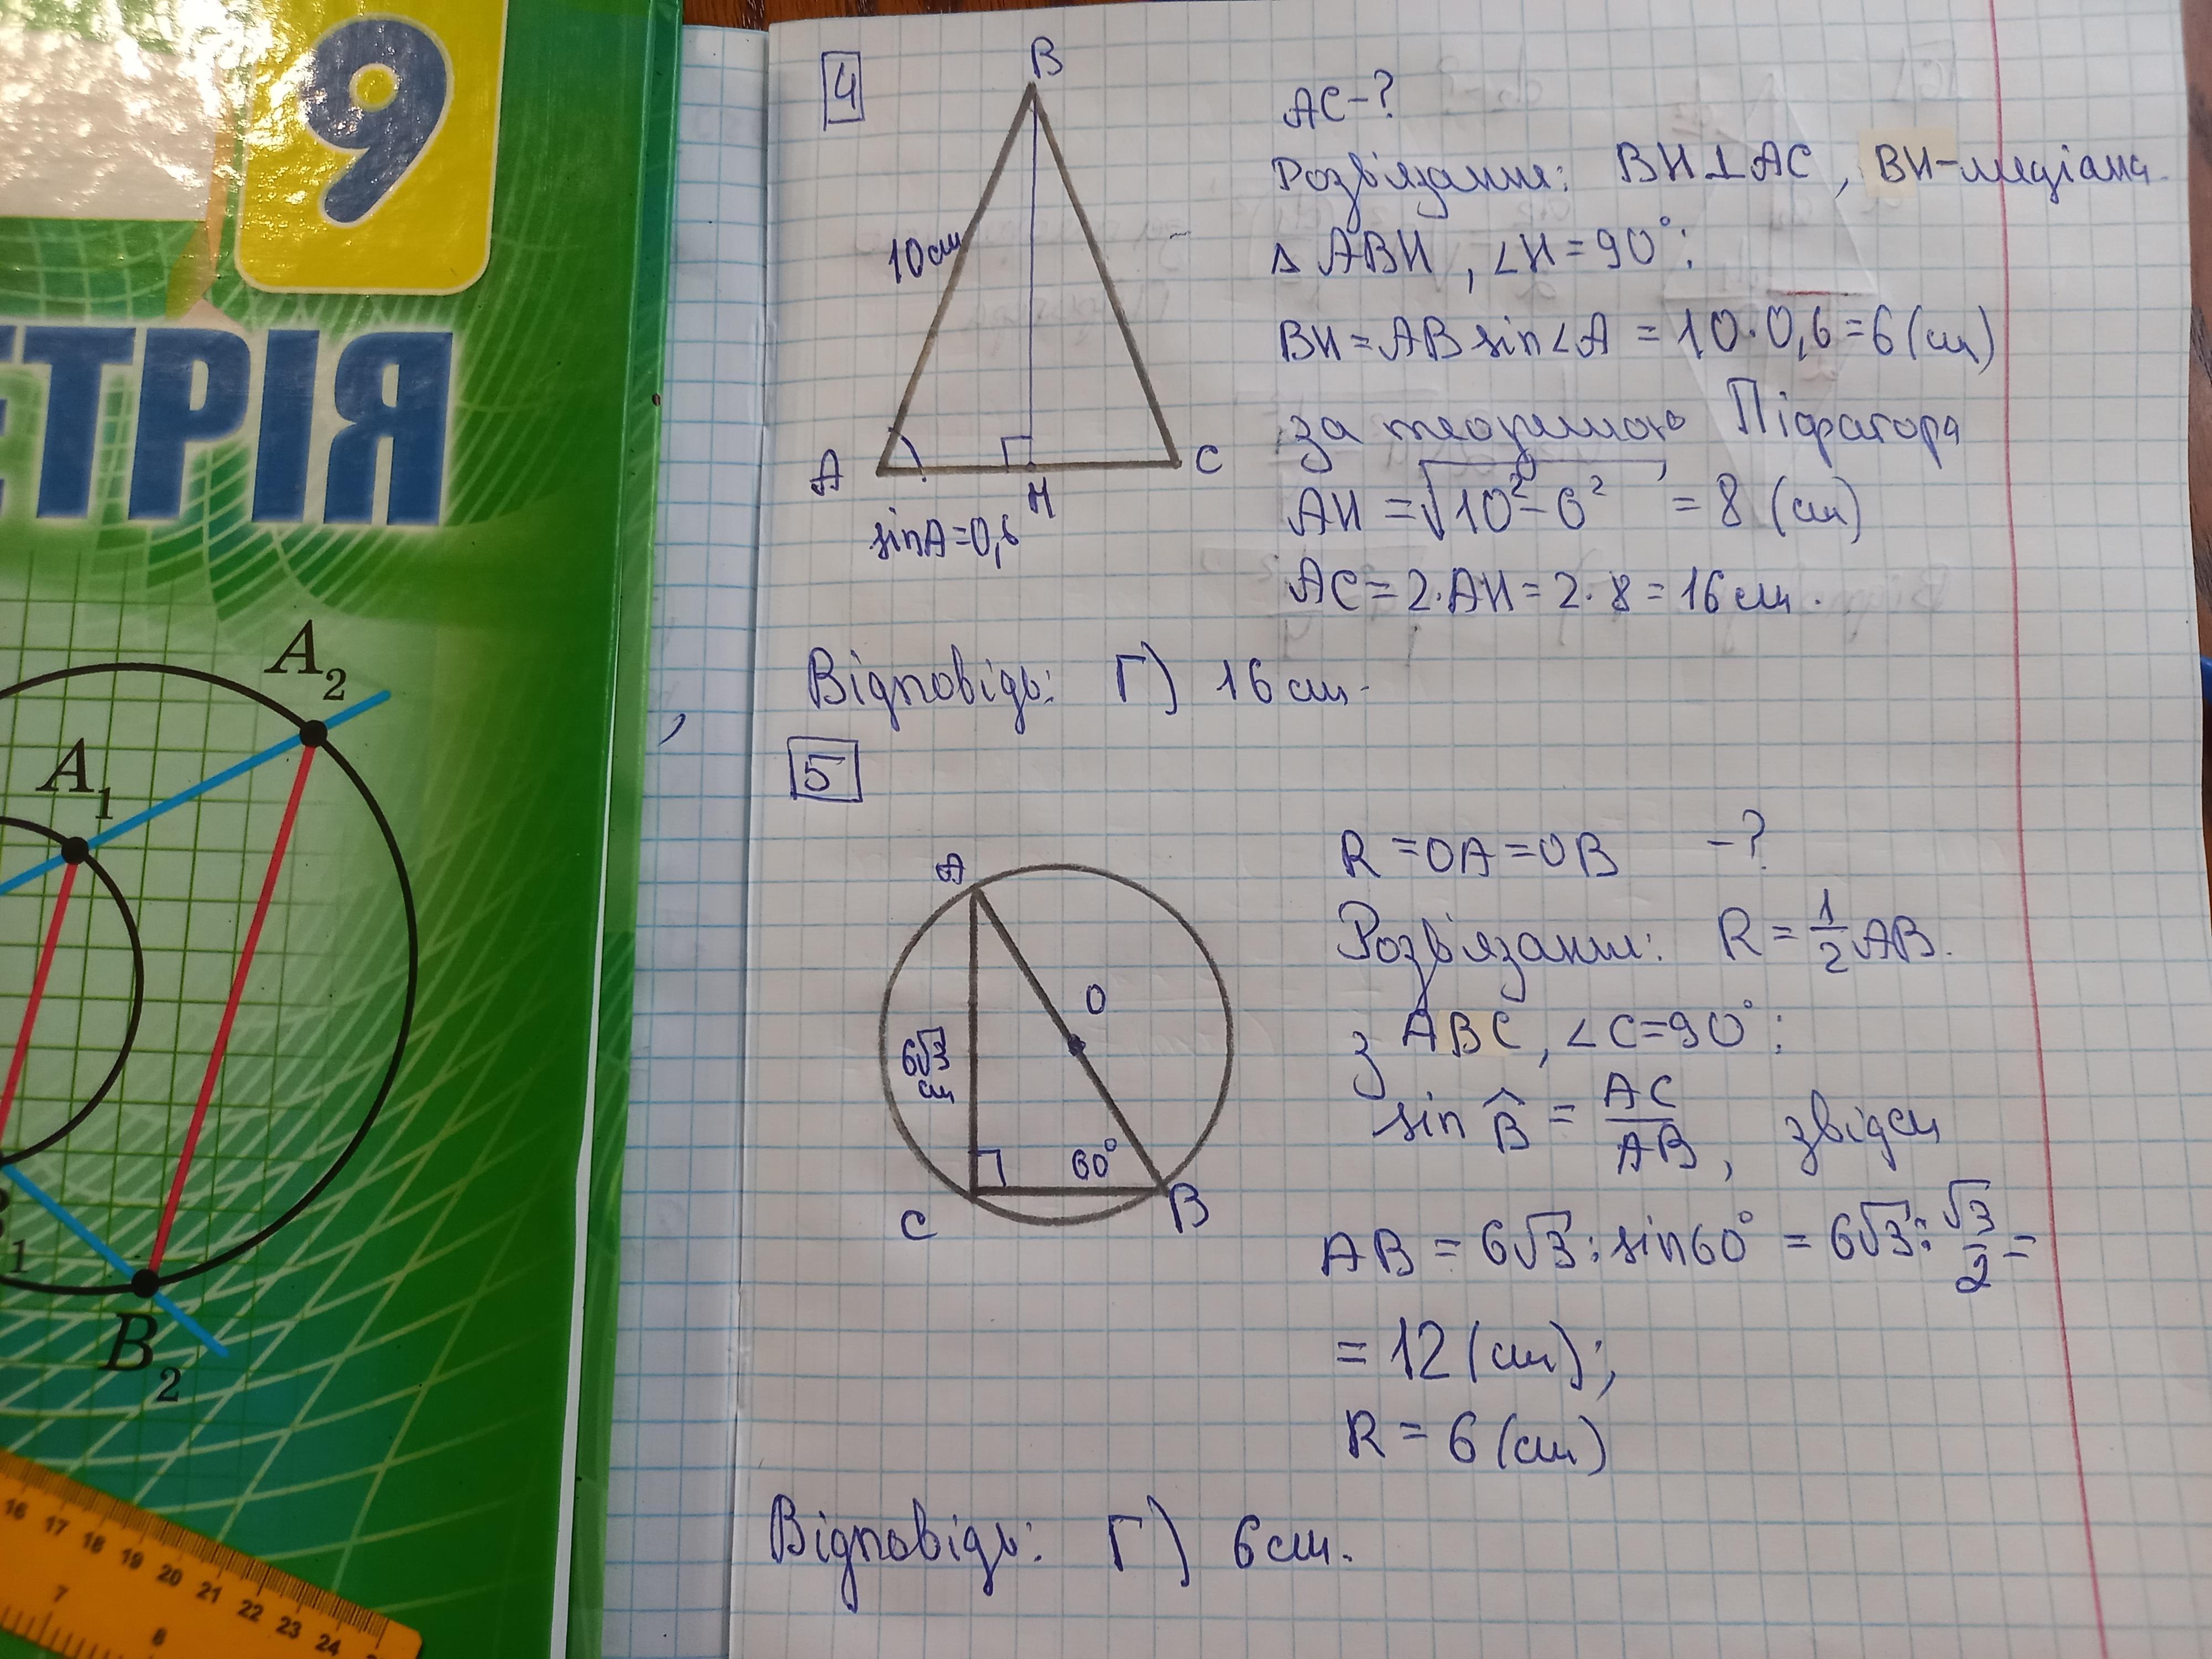 9
ЕТРІЯ
A₂
A₁
B₁
B₂
16 17 18 19 20 21 22 23 24
7
8
4
B
10 см
A
H
C
sinA=0,6
AC-?
Розв'язання: BH⊥AC, BH-медіана
△ ABH, ∠H=90°:
BH=AB sin∠A = 10·0,6=6(см)
за теоремою Піфагора
AH = √10²-6² = 8 (см)
AC=2·AH=2·8=16см.
Відповідь: Г) 16см.
5
A
O
6√3
см
60°
C
B
R =OA=OB -?
Розв'язання: R=1/2 AB.
з ABC, ∠C=90°:
sin B̂ = AC/AB, звідси
AB = 6√3:sin60° = 6√3:√3/2=
= 12(см);
R = 6(см)
Відповідь: Г) 6см.